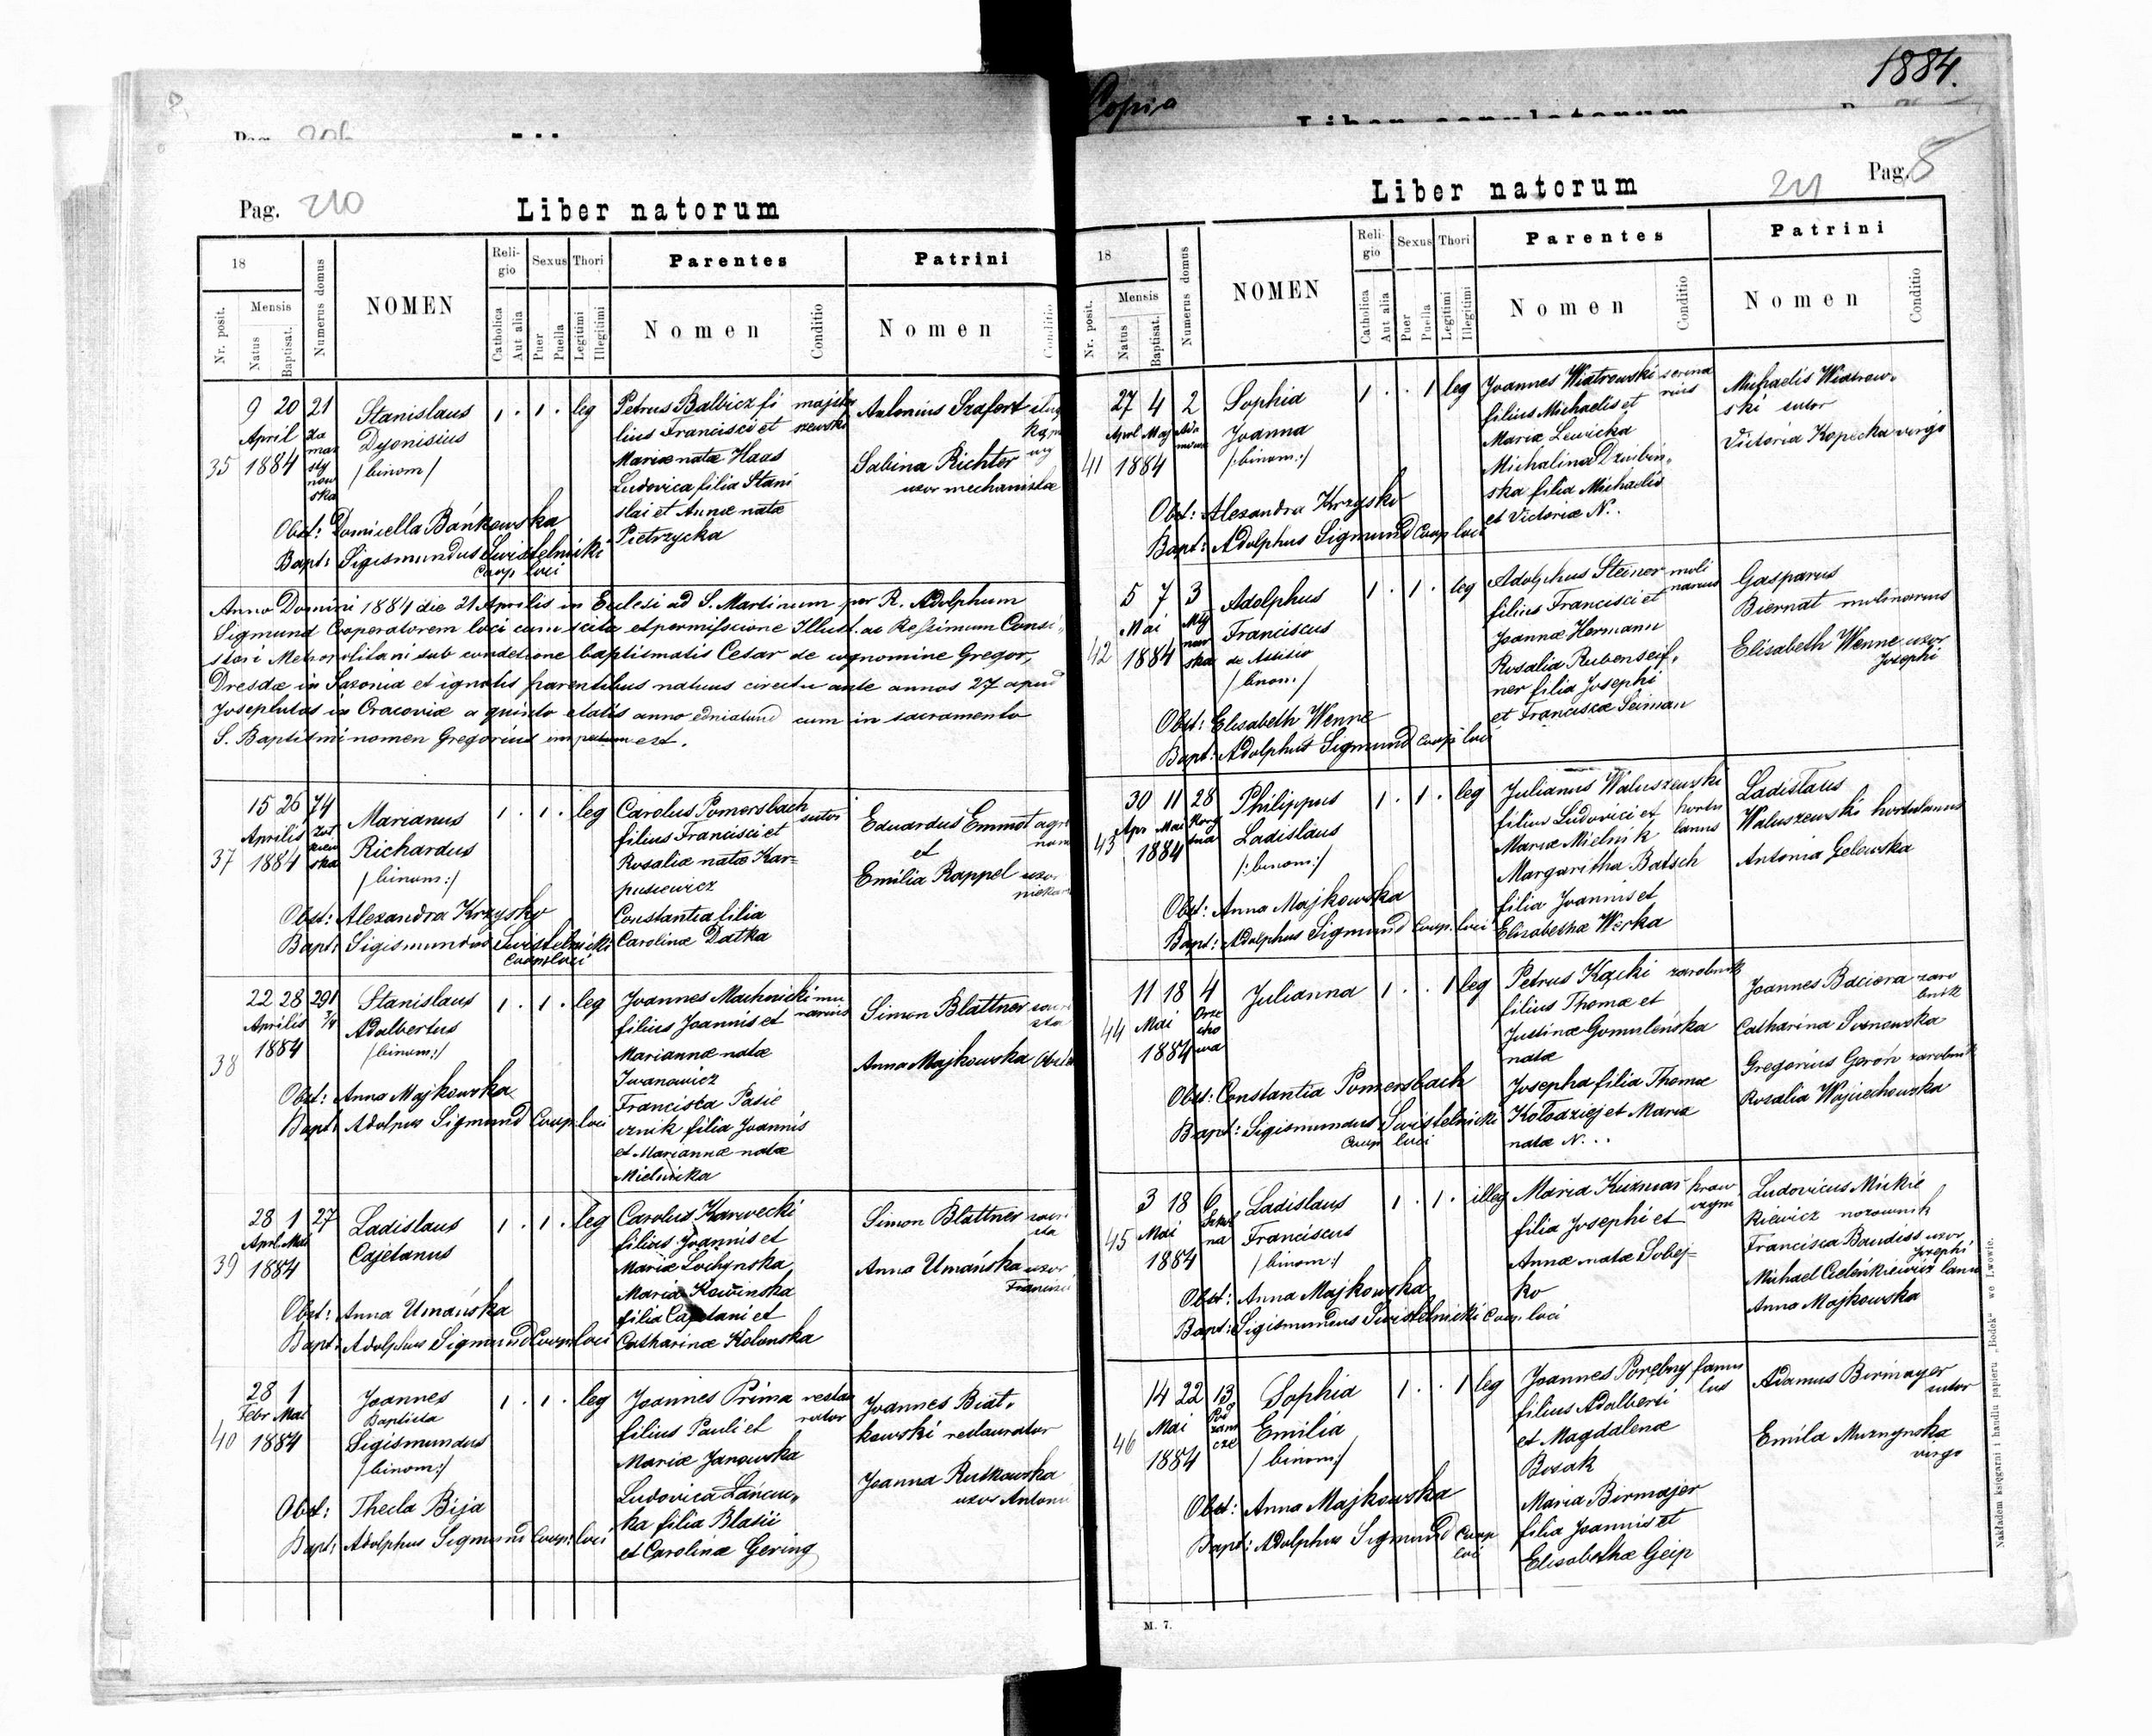 1884.
Copia
Pag. 206
Liber copulatorum
Pag. 210
Liber natorum
18
Nr. posit.
Mensis
Natus
Baptisat.
Numerus domus
NOMEN
Religio
Catholica
Aut alia
Sexus
Puer
Puella
Thori
Legitimi
Illegitimi
Parentes
Nomen
Conditio
Patrini
Nomen
Conditio
35
9 20 21
April
1884
Za
mar
sty
now
ska
Stanislaus
Dyonisius
/binom/
1 . 1 . leg
Petrus Balbicz fi
lius Francisci et
Mariæ natæ Haas
Ludovica filia Stani
slai et Annæ natæ
Pietrzycka
majster
szewski
Antonius Szafort
Sabina Richter
uxor mechanistæ
Obst: Domicella Bańkowska
Bapt: Sigismundus Swistelnicki
Coop loci
Anno Domini 1884 die 21 Aprilis in Eclesi ad S. Martinum per R. Adolphum
Sigmund Cooperatorem loci cum scitu et permissione Illust. ac Ressimum Consi„
stori Metropolitani sub condetione baptismatis Cesar de cognomine Gregor,
Dresdæ in Saxonia et ignotis parentibus natus circitu ante annos 27 apud
Josephitas in Cracoviæ a quinto etatis anno cum in sacramento
S. Baptismi nomen Gregorius est.
37
15 26 74
Aprilis
1884
Żoł
kiew
ska
Marianus
Richardus
/binom:/
1 . 1 . leg
Carolus Pomersbach
sutor
filius Francisci et
Rosaliæ natæ Kar=
pusiewicz
Constantia filia
Carolinæ Datka
Eduardus Emmot
et
Emilia Rappel uxor
Obst: Alexandra Krzysko
Bapt: Sigismundus Swistelnicki
Coop loci
38
22 28 291
3/4
Aprilis
1884
Stanislaus
Adalbertus
/binom:/
1 . 1 . leg
Joannes Machnicki mu
rarius
filius Joannis et
Mariannæ natæ
Iwanowicz
Francisca Pasie
cznik filia Joannis
et Mariannæ natæ
Mielnicka
Simon Blattner
Anna Majkowska
Obst: Anna Majkowska
Bapt: Adolpus Sigmund Coop: loci
39
28 1 27
Aprl. Mai
1884
Ladislaus
Cajetanus
1 . 1 . leg
Carolus Karwecki
filius Joannis et
Mariæ Lochynska
Maria Kowinska
filia Cajetani et
Catharinæ Kolonska
Simon Blattner
Anna Umańska uxor
Francisci
Obst: Anna Umańska
Bapt: Adolphus Sigmund Coop: loci
40
28 1
Febr Mai
1884
Joannes
Baptista
Sigismundus
/binom:/
1 . 1 . leg
Joannes Prima restau
rator
filius Pauli et
Mariæ Janowska
Ludovica Łańcuc„
ka filia Blasii
et Carolinæ Gering
Joannes Biat„
kowski restaurator
Joanna Rutkowska
uxor Antoni
Obst: Thecla Bija
Bapt: Adolphus Sigmund Coop: loci
Liber natorum
211
Pag. 8
18
Nr. posit.
Mensis
Natus
Baptisat.
Numerus domus
NOMEN
Religio
Catholica
Aut alia
Sexus
Puer
Puella
Thori
Legitimi
Illegitimi
Parentes
Nomen
Conditio
Patrini
Nomen
Conditio
41
27 4 2
Aprl Maj
1884
Sophia
Joanna
/:binom:/
1 . . 1 leg
Joannes Wiatrowski
filius Michaelis et
Mariæ Lewicka
Michalina Dziubiń„
ska filia Michaelis
et Victoriæ N..
Michaelis Wiatrow„
ski sutor
Victoria Kopecka virgo
Obst: Alexandra Krzysko
Bapt: Adolphus Sigmund Coop loci
42
5 7 3
Mai
1884
Mły
nar
ska
Adolphus
Franciscus
de Assisio
/binom:/
1 . 1 . leg
Adolphus Steiner moli
narius
filius Francisci et
Joannæ Hermann
Rosalia Rubenseif„
ner filia Josephi
et Franciscæ Seiman
Gasparus
Biernat molinarius
Elisabeth Wenne uxor
Josephi
Obst: Elisabeth Wenne
Bapt: Adolphus Sigmund Coop loci
43
30 11 28
Apr Mai
1884
Philippus
Ladislaus
/:binom:/
1 . 1 . leg
Julianus Waluszewski
filius Ludovici et hortu
lanus
Mariæ Mielnik
Margaritha Batsch
filia Joannis et
Elisabethæ Werka
Ladislaus
Waluszewski hortulanus
Antonia Gelowska
Obst: Anna Majkowska
Bapt: Adolphus Sigmund Coop. loci
44
11 18 4
Mai
1884
Orze
cho
wa
Julianna
1 . . 1 leg
Petrus Kącki zarobnik
filius Thomæ et
Justinæ Gomuleńska
natæ
Josepha filia Thomæ
Kołodziej et Mariæ
natæ N...
Joannes Baciora zaro
bnik
Catharina Sosnowska
Gregorius Geroń zarobnik
Rosalia Wojciechowska
Obst: Constantia Pomersbach
Bapt: Sigismundus Swistelnicki
Coop loci
45
3 18 6
Mai
1884
Ladislaus
Franciscus
/binom:/
1 . 1 . illeg
Maria Kuzmas
filia Josephi et
Annæ natæ Sobej=
ko
Ludovicus Mickie
kiewicz nozownik
Francisca Baudiss uxor
Josephi
Michael Cieleńkiewicz
Anna Majkowska
Obst: Anna Majkowska
Bapt: Sigismundus Swistelnicki Coop. loci
46
14 22 13
Mai
1884
Pod
zam
cze
Sophia
Emilia
/binom:/
1 . . 1 leg
Joannes Porębny famu
lus
filius Adalberti
et Magdalenæ
Bosak
Maria Birmajer
filia Joannis et
Elisabethæ Geip
Adamus Birmayer
sutor
Emila Muzngnska
virgo
Obst: Anna Majkowska
Bapt: Adolphus Sigmund Coop
loci
M. 7.
Nakładem księgarni i handlu papieru „Bodek" we Lwowie.